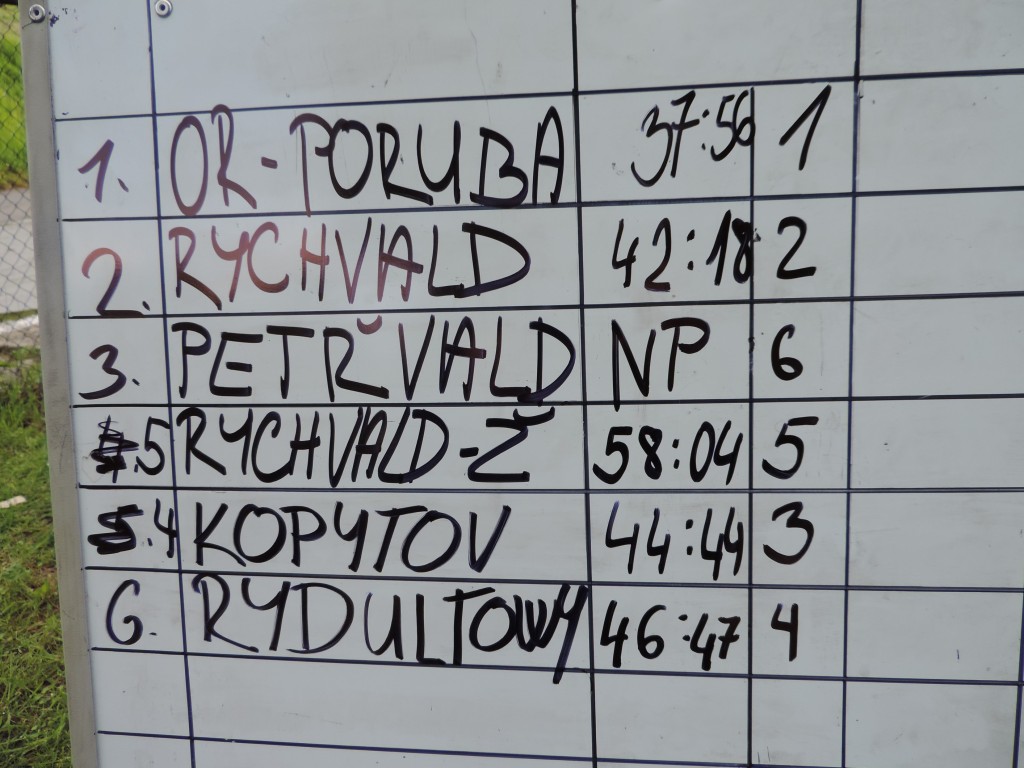 1. OR-PORUBA 37:56 1
2. RYCHVALD 42:18 2
3. PETŘVALD NP 6
.5 RYCHVALD-Ž 58:04 5
.4 KOPYTOV 44:44 3
6. RYDULTOWY 46:47 4